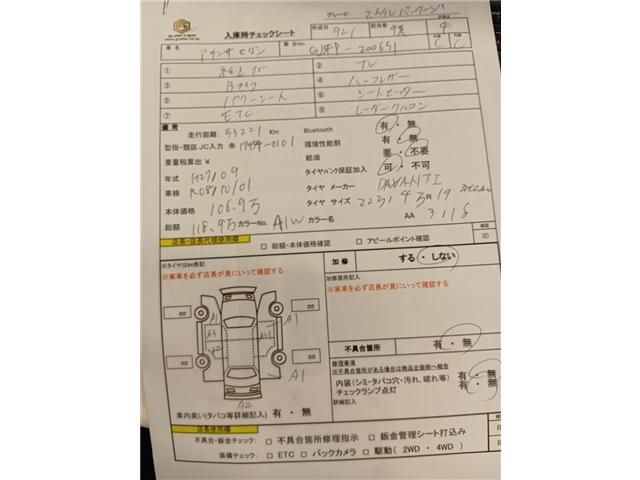 グレード: 25Sレパッケージ
入庫時チェックシート
作成日 9/21 担当者
4
車名 アテンザセダン 車台No. GJ5FP-200651
C C
① 純正ナビ ② TV
③ Bカメラ ④ ハーフレザー
⑤ パワーシート ⑥ シートヒーター
⑦ ETC ⑧ レーダークルコン
備考
走行距離: 53221 Km Bluetooth 有・無
型指・類区JC入力 未 17954-0101 環境性能割 有・無
重量税算出 ¥ 給油 要・不要
年式 H27109 タイヤパンク保証加入 可・不可
車検 R08/10/01 タイヤ メーカー DAVANTI
本体価格 106.9万 タイヤ サイズ 225/45R19
総額 118.9万 カラーNo. A1W カラー名 AA 3118
確認
店長・店長代理使用欄 □ 総額・本体価格確認 □ アピールポイント確認 印
※タイヤは㎜表記
※実車を必ず店長が見にいって確認する
加修 する・しない
加修箇所記入
※実車を必ず店長が見にいって確認する
A1 A1
A3
A1
A2
不具合箇所 有・無
修理事項
※不具合箇所がある場合は商品企画部へ報告
内装(シミ・タバコ穴・汚れ、破れ等) 有・無
チェックランプ点灯 有・無
詳細記入
車内臭い(タバコ等詳細記入) 有・無
店長使用欄
確認
不具合・鈑金チェック: □ 不具合箇所修理指示 □ 鈑金管理シート打込み 印
装備チェック: □ ETC □ バックカメラ □ 駆動(2WD・4WD) 印